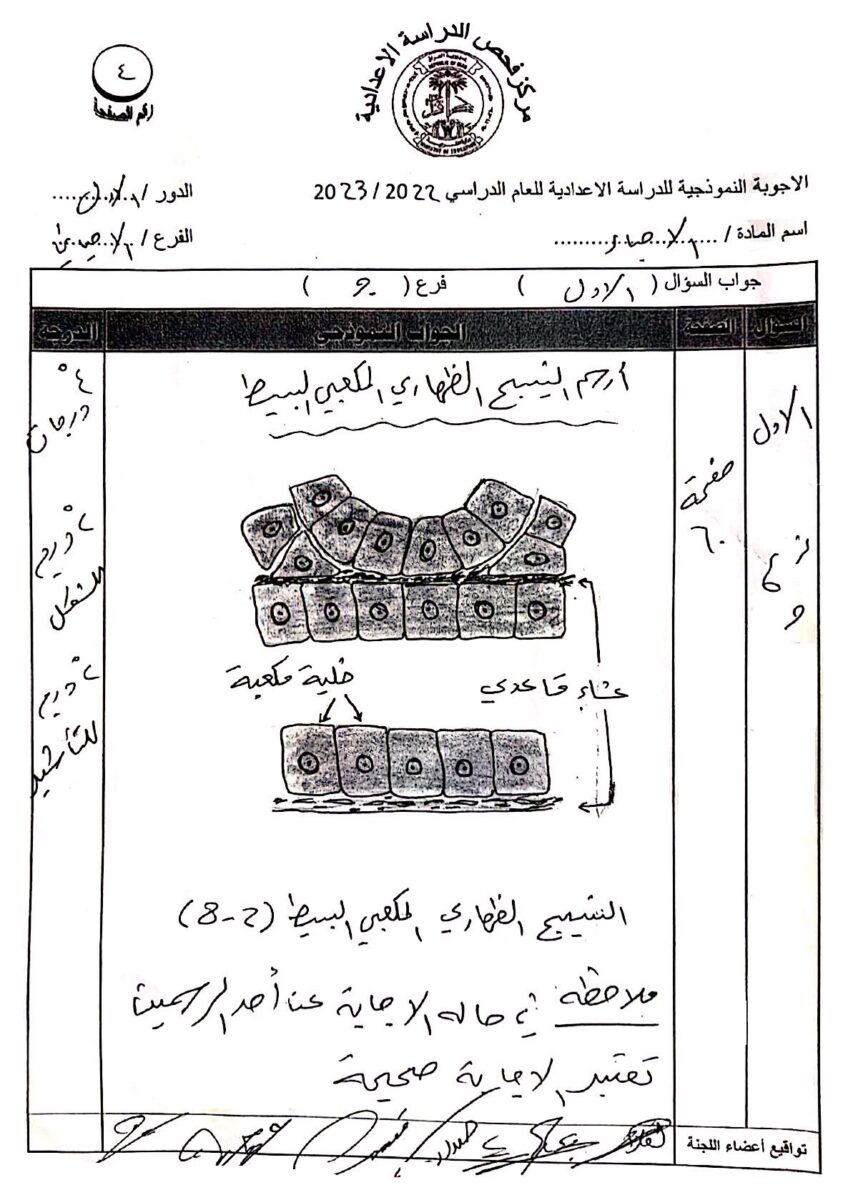 مركز فحص الدراسة الاعدادية
٤
رقم الصفحة
الاجوبة النموذجية للدراسة الاعدادية للعام الدراسي 2022 / 2023
الدور / الاول
اسم المادة / الاحياء
الفرع / الاحيائي
جواب السؤال ( الاول ) فرع ( و )
السؤال الصفحة الجواب النموذجي الدرجة
الاول
فرع
و
صفحة
٦٠
أرسم النسيج الظهاري المكعبي البسيط
٤
درجات
٢ درجة
للشكل
٢ درجة
للتأشير
غشاء قاعدي
خلية مكعبة
النسيج الظهاري المكعبي البسيط (2-8)
ملاحظة في حالة الاجابة عن أحد الرسمين
تعتبر الاجابة صحيحة
تواقيع أعضاء اللجنة